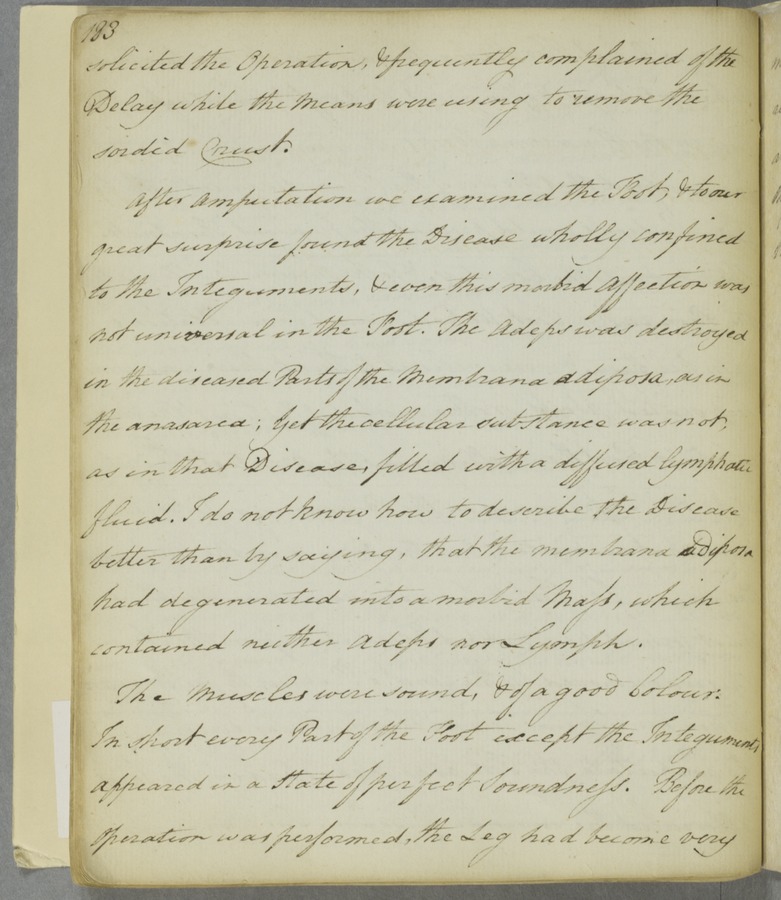 183
solicited the Operation, & frequently complained of the
Delay while the Means were using to remove the
sordid Crust.
After Amputation we examined the Foot, & to our
great surprise found the Disease wholly confined
to the Integuments, & even this morbid Affection was
not universal in the Foot. The Adeps was destroyed
in the diseased Parts of the Membrana adiposa, as in
the anasarca; Yet the cellular substance was not,
as in that Disease, filled with a diffused lymphatic
fluid. I do not know how to describe the Disease
better than by saying, that the membrana adiposa
had degenerated into a morbid Maſs, which
contained neither Adeps nor Lymph.
The Muscles were sound, & of a good Colour.
In short every Part of the Foot except the Integuments,
appeared in a State of perfect Soundneſs. Before the
Operation was performed, the Leg had become very